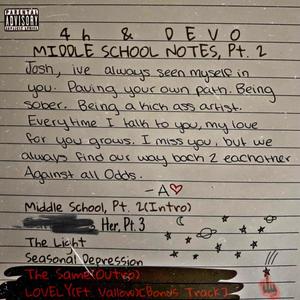 PARENTAL
ADVISORY
EXPLICIT CONTENT
4h & DEVO
MIDDLE SCHOOL NOTES, Pt. 2
Josh, ive always seen myself in
you. Paving your own path. Being
sober. Being a kick ass artist.
Everytime I talk to you, my love
for you grows. I miss you, but we
always find our way back 2 eachother
Against all Odds.
-A♡
Middle School, Pt. 2(Intro)
Her, Pt. 3
The Light
Seasonal Depression
The Same(Outro)
LOVELY(Ft. Vallow)[Bonus Track]